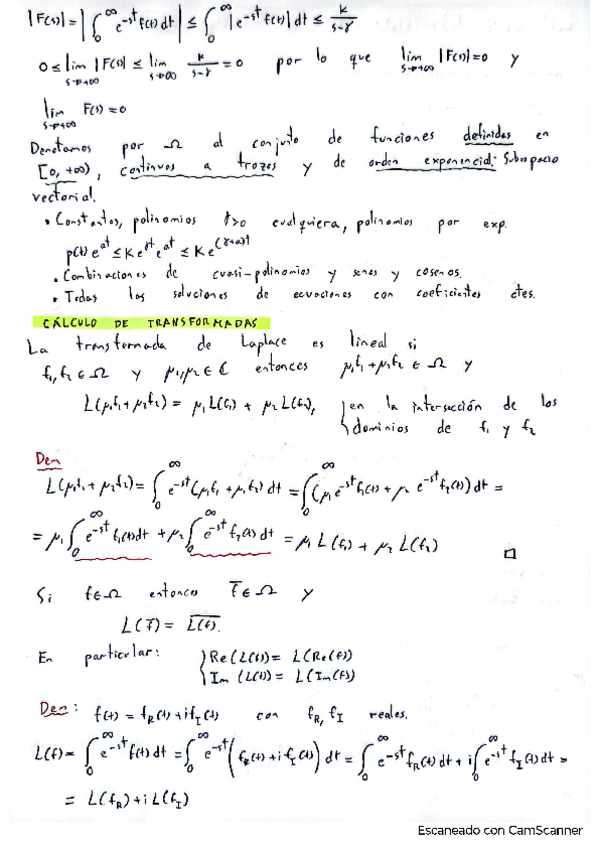 |F(s)| = |∫₀^∞ e^{-st} f(t) dt| ≤ ∫₀^∞ |e^{-st} f(t)| dt ≤ K/(s-γ)
0 ≤ lim_{s→+∞} |F(s)| ≤ lim_{s→+∞} K/(s-γ) = 0 por lo que lim_{s→+∞} |F(s)| = 0 y
lim_{s→+∞} F(s) = 0
Denotamos por Ω al conjunto de funciones definidas en
[0, +∞), continuas a trozos y de orden exponencial. Subespacio
vectorial.
• Constantes, polinomios γ>0 cualquiera, polinomios por exp.
p(t) e^{at} ≤ K e^{γt} e^{at} ≤ K e^{(γ+a)t}
• Combinaciones de cuasi-polinomios y senos y cosenos.
• Todas las soluciones de ecuaciones con coeficientes ctes.
CÁLCULO DE TRANSFORMADAS
La transformada de Laplace es lineal si
f₁, f₂ ∈ Ω y μ₁, μ₂ ∈ C entonces μ₁f₁ + μ₂f₂ ∈ Ω y
L(μ₁f₁ + μ₂f₂) = μ₁ L(f₁) + μ₂ L(f₂), } en la intersección de los
dominios de f₁ y f₂
Dem
L(μ₁f₁ + μ₂f₂) = ∫₀^∞ e^{-st} (μ₁f₁ + μ₂f₂) dt = ∫₀^∞ (μ₁ e^{-st} f₁(t) + μ₂ e^{-st} f₂(t)) dt =
= μ₁ ∫₀^∞ e^{-st} f₁(t) dt + μ₂ ∫₀^∞ e^{-st} f₂(t) dt = μ₁ L(f₁) + μ₂ L(f₂) □
Si f ∈ Ω entonces f̅ ∈ Ω y
L(f̅) = \overline{L(f)}.
En particular: { Re(L(f)) = L(Re(f))
Im (L(f)) = L(Im(f))
Dem: f(t) = f_R(t) + i f_I(t) con f_R, f_I reales.
L(f) = ∫₀^∞ e^{-st} f(t) dt = ∫₀^∞ e^{-st} (f_R(t) + i f_I(t)) dt = ∫₀^∞ e^{-st} f_R(t) dt + i ∫₀^∞ e^{-st} f_I(t) dt =
= L(f_R) + i L(f_I)
Escaneado con CamScanner